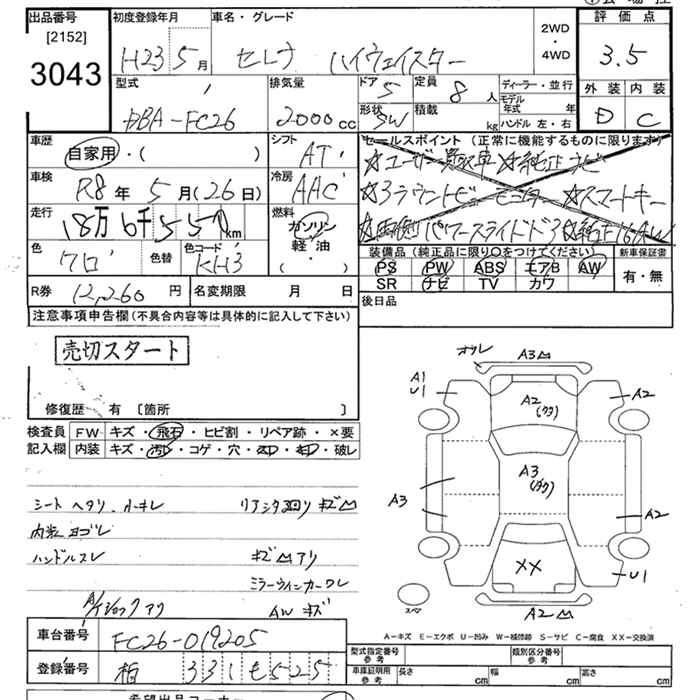 出品番号
[2152]
3043
初度登録年月
H23 5月
車名・グレード
セレナ ハイウェイスター
2WD
・
4WD
評価点
3.5
外装 内装
D C
型式
DBA-FC26
排気量
2000cc
ドア 5
形状 SW
定員 8人
積載 kg
ディーラー・並行
モデル年式 年
ハンドル 左・右
車歴
自家用・( )
シフト
AT
車検
R8年 5月(26日)
冷房
AAC
走行
18万6千551km
燃料
ガソリン
軽油
・( )
色
クロ
色替
色コード
KH3
R券 12,260円
名変期限 月 日
セールスポイント(正常に機能するものに限ります)
☆ユーザー買取車 ☆純正ナビ
☆アラウンドビューモニター ☆スマートキー
☆両側パワースライドドア ☆純正16AW
装備品(純正品に限り○をつけてください)
PS PW ABS エアB AW
SR ナビ TV カワ
新車保証書
有・無
後日品
注意事項申告欄(不具合内容等は具体的に記入して下さい)
売切スタート
修復歴 有 [箇所 ]
検査員記入欄
FW キズ・飛石・ヒビ割・リペア跡・×要
内装 キズ・汚レ・コゲ・穴・・破レ
シートヘタリ、
リアシタ廻リ キズ凹
内装ヨゴレ
ハンドルスレ
キズ凹アリ
ミラーウインカーワレ
AW キズ
A3凹
A1
U1
A2
(クリ)
A2
A3
A3
A2
××
U1
スペア
A2凹
A-キズ E-エクボ U-凹み W-補修跡 S-サビ C-腐食 XX-交換済
車台番号
FC26-019205
登録番号
柏 331 も 525
型式指定番号
参考
類別区分番号
参考
車庫証明用
参考
長さ cm 幅 cm 高さ cm